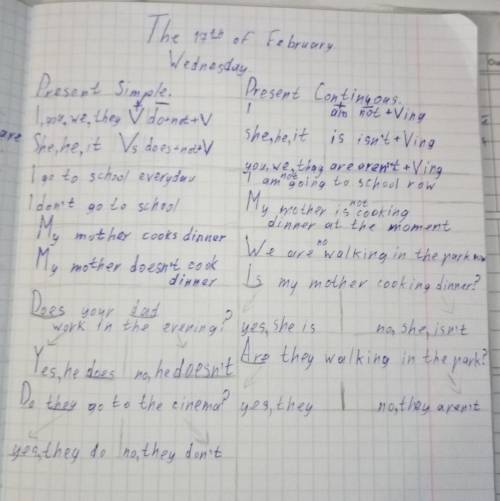 The 17th of February
Wednesday
Present Simple.
+ –
I, you, we, they V do+not+V
She, he, it Vs does+not+V
I go to school everyday
I don't go to school
My mother cooks dinner
My mother doesn't cook
dinner
Does your dad
work in the evening?
Yes, he does no, he doesn't
Do they go to the cinema?
yes, they do no, they don't
Present Continuous.
+ –
I am not +Ving
she, he, it is isn't +Ving
you, we, they are aren't +Ving
I am not going to school now
My mother is not cooking
dinner at the moment
We are no walking in the park now
Is my mother cooking dinner?
yes, she is no, she, isn't
Are they walking in the park?
yes, they no, they aren't
are